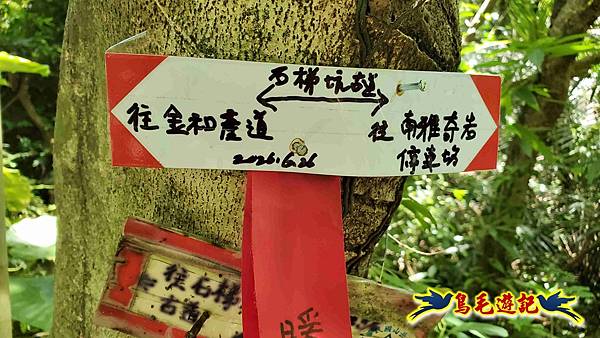 石梯坑越
往金和產道
往 南雅奇岩
停車場
2026.6.26
往石梯
古道
暖
鳥毛遊記